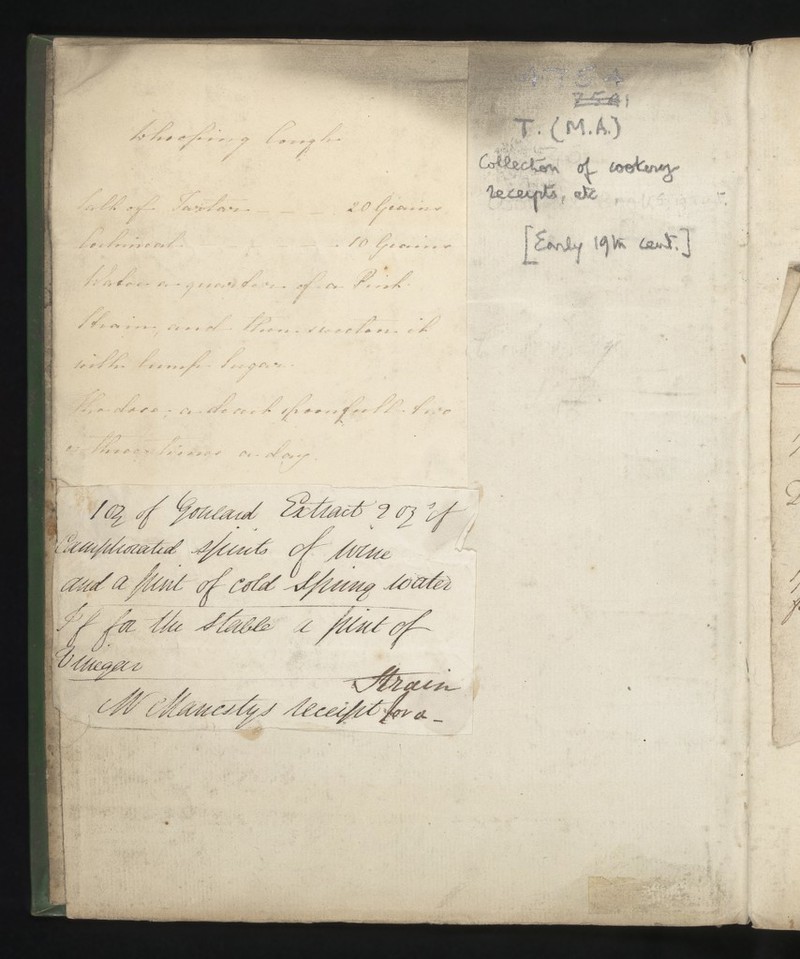 Whooping Cough
Salt of Tartar - - - 20 Grains
Cochineal - - - 10 Grains
Water a quarter of a Pint
Strain, and then sweeten it
with lump Sugar.
The dose, a desert spoonfull two
or three times a day.
1 oz of Goulard Extract 2 oz of
Camphorated spirits of wine
and a pint of cold Spring water
If for the Stable a pint of
Vinegar
Strain
Mr Manestys receipt for a -
4784
7541
T. (M.A.)
Collection of cookery
receipts, etc
[Early 19th cent.]